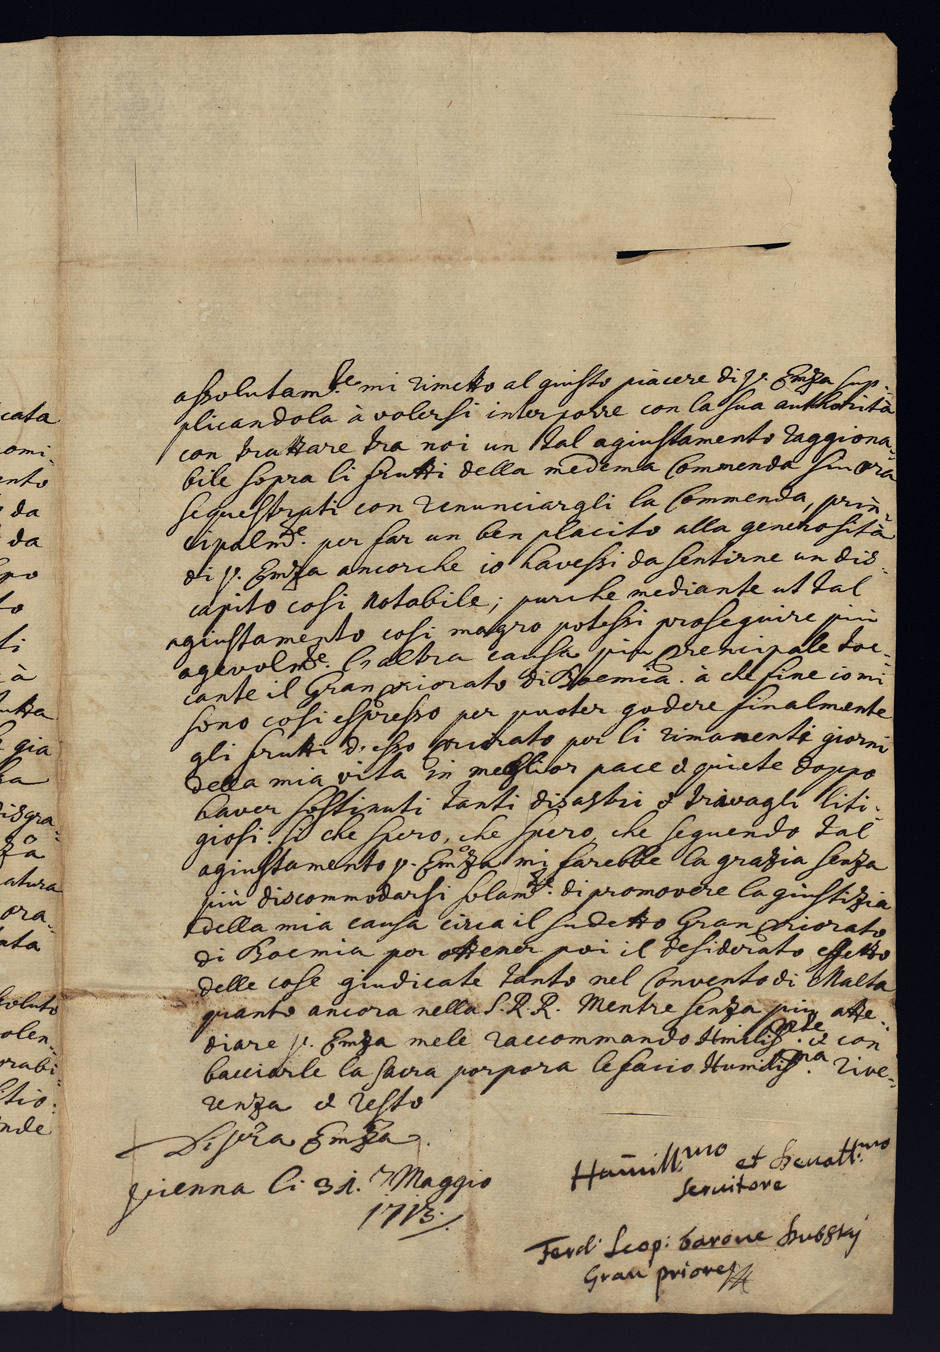 cata
omi-
ento
da
da
po
to
ti
à
utta
gia
sa
disgra-
za
atura
ora-
ata
soluto
olen-
rabi-
tio-
nde
assolutam.te mi rimetto al giusto piacere di V. Emza sup-
plicandola à volersi interporre con la sua authorità
con trattare tra noi un tal agiustamento raggiona-
bile sopra li frutti della medema Commenda sin ora
sequestrati con renunciargli la Commenda, prin-
cipalmte. per far un ben placito alla generosità
di V. Emza ancorche io havessi da sentirne un dis-
capito cosi notabile; purche mediante ut tal
agiustamento cosi magro potessi proseguire piu
agevolmte. l'altra causa piu prencipale toc-
cante il Gran Priorato di Boemia. à che fine io mi
sono cosi espresso per puoter godere finalmente
gli frutti di esso priorato per li rimanenti giorni
della mia vita in meglior pace e quiete doppo
haver sostinuti tanti disastri e travagli liti-
giosi. si che spero, che spero, che seguendo tal
agiustamento V. Emza mi farebbe la grazia senza
più discommodarsi solam.te di promovere la giustizia
della mia causa circa il sudetto Gran Priorato
di Boemia per ottener poi il desiderato effetto
delle cose giudicate tanto nel Convento di Malta
quanto ancora nella S. R. R. Mentre senza piu atte-
diare V. Emza mele raccommando Hmiliss.te et con
bacciarle la sacra porpora le facio Humilis.ma rive-
renza e resto
Di Vra Emza.
Vienna li 31. Maggio
1713.
Hamill.mo et Devott.mo
Servitore
Ferd: Leop: barone Dubsky
Gran priore